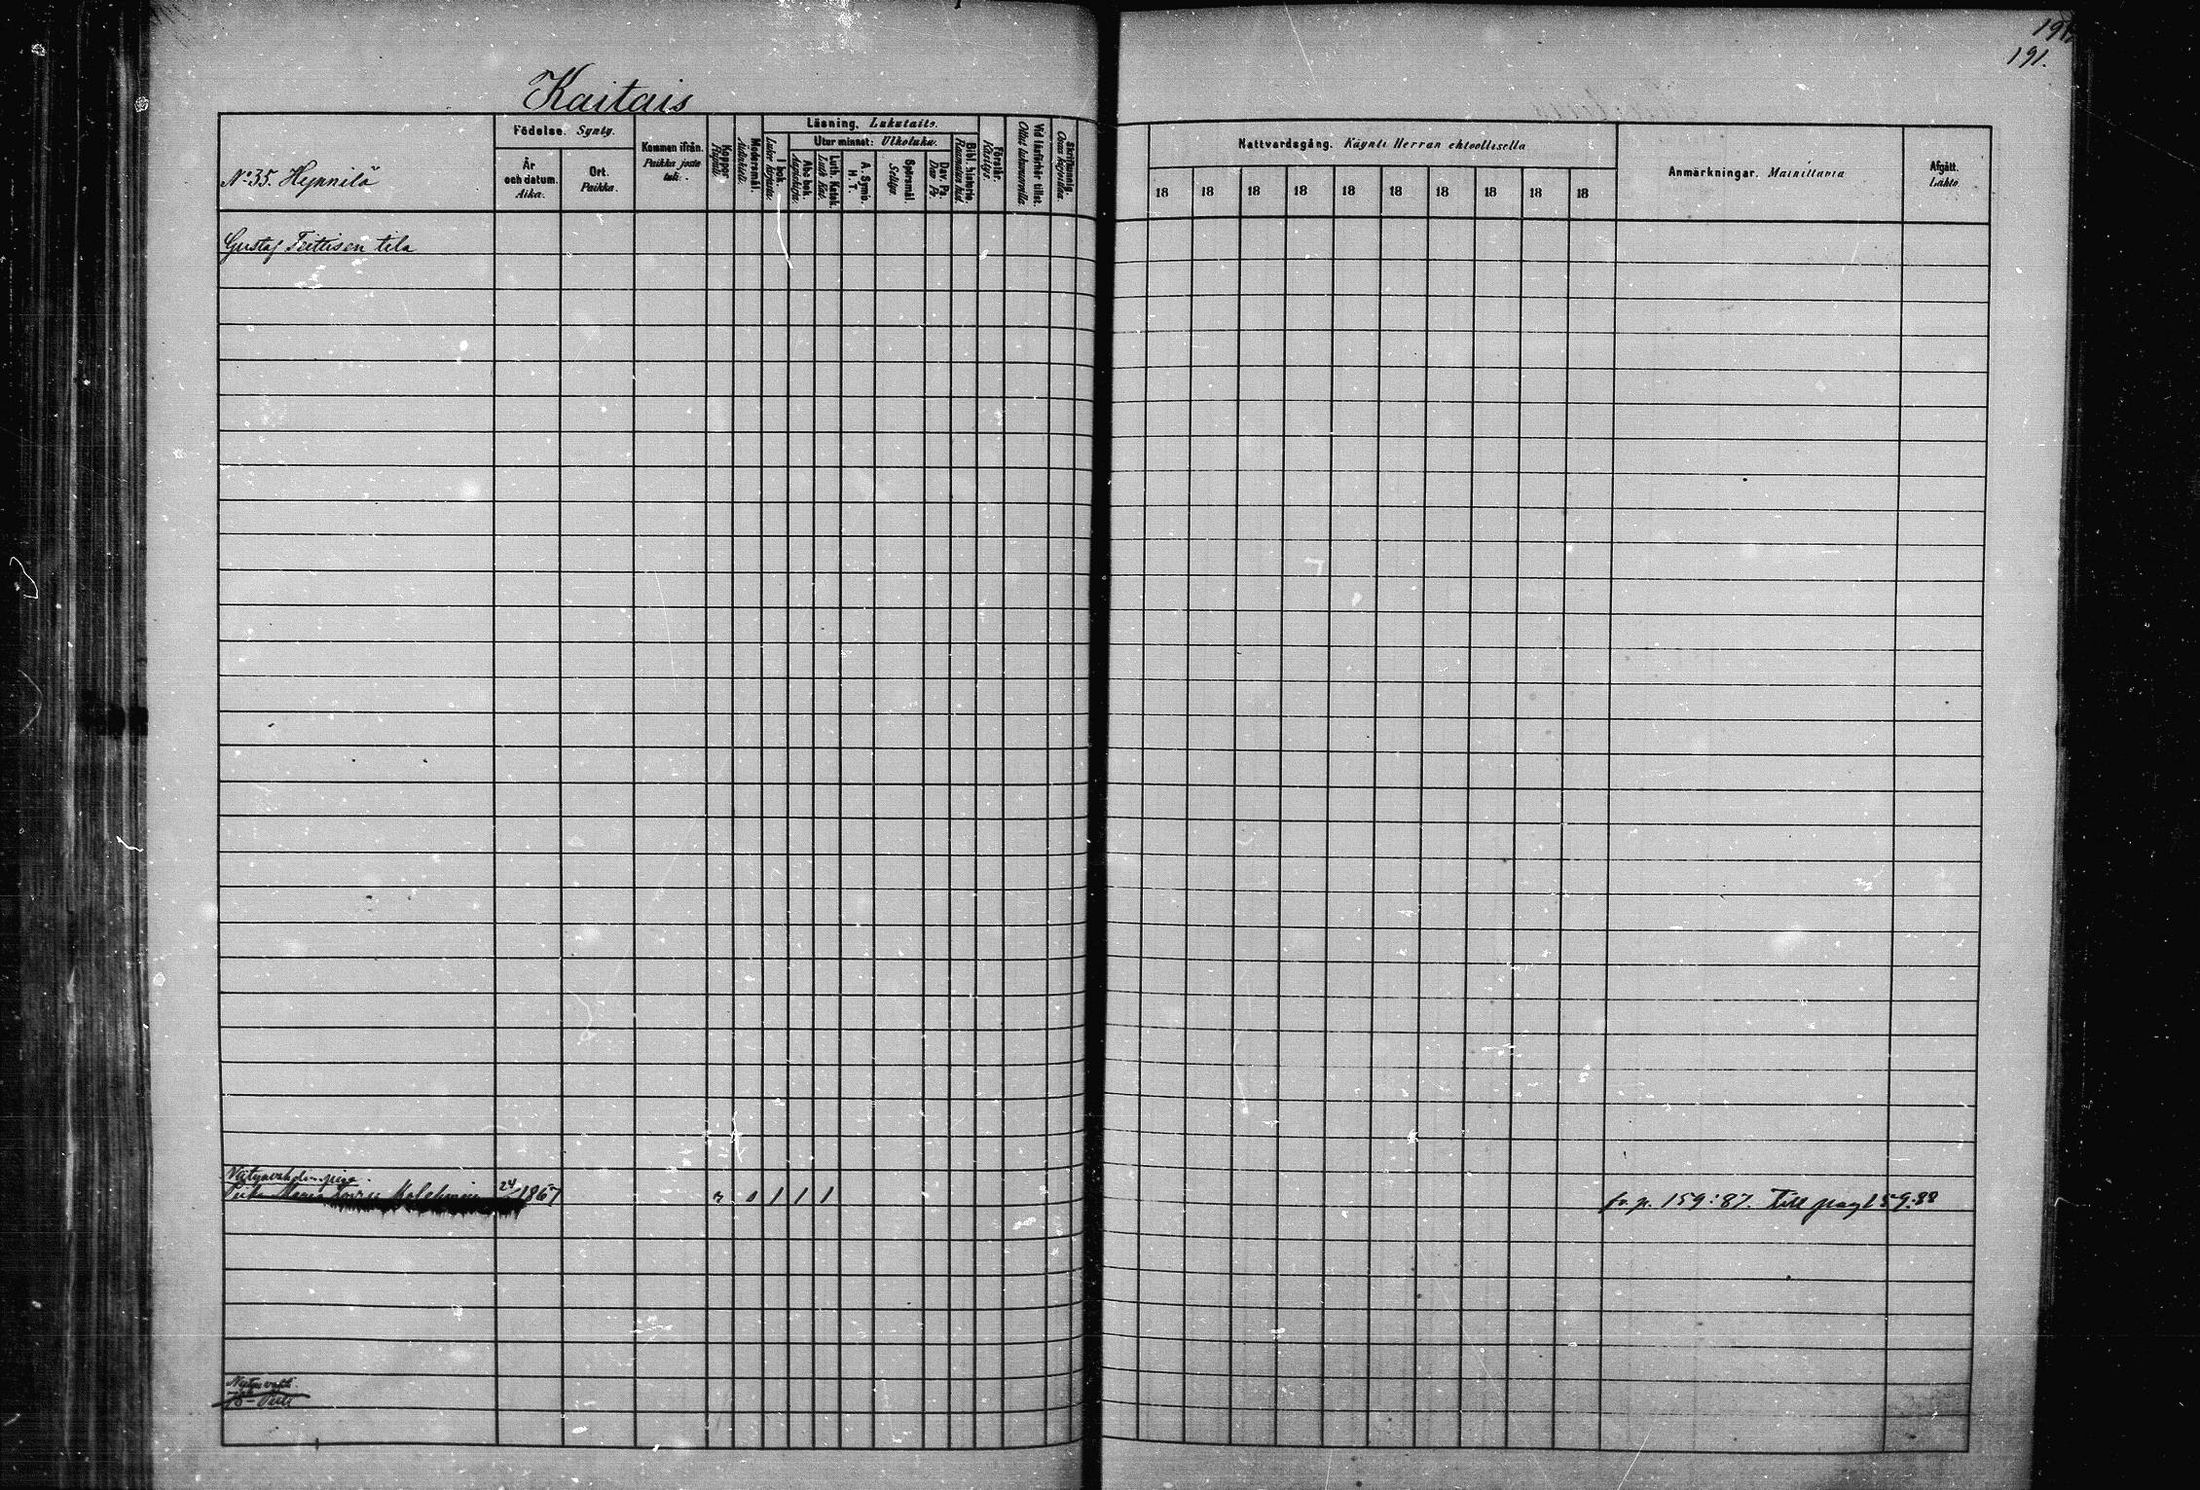 191.
191.
Kaitais
No 35. Hynnilä
Födelse. Synty.
År och datum. Aika.
Ort. Paikka.
Kommen ifrån. Paikka josta tuli.
Koppor. Rupuli.
Modersmål. Äidinkieli.
Läsning. Lukutaito.
I bok. Luku kirjassa.
Utur minnet: Ulkoluku.
Aba bok. Aapiskirja.
Luth. Katek. Luth. Kat.
A. Symb. H. T.
Spörsmål. Selitys.
Dav. Ps. Dav. Ps.
Bibl. historia. Raamatun hist.
Förstår. Käsitys.
Vid läsförhör tillst. Ollut lukusijoilla.
Skrifkunnig. Osaa kirjoittaa.
Nattvardsgång. Käynti Herran ehtoollisella
18 18 18 18 18 18 18 18 18 18
Anmärkningar. Mainittavia
Afgått. Lähtö.
Gustaf Teittisen tila
24 1867 1 1 1 fr. p. 159:87. Till pag 159:88